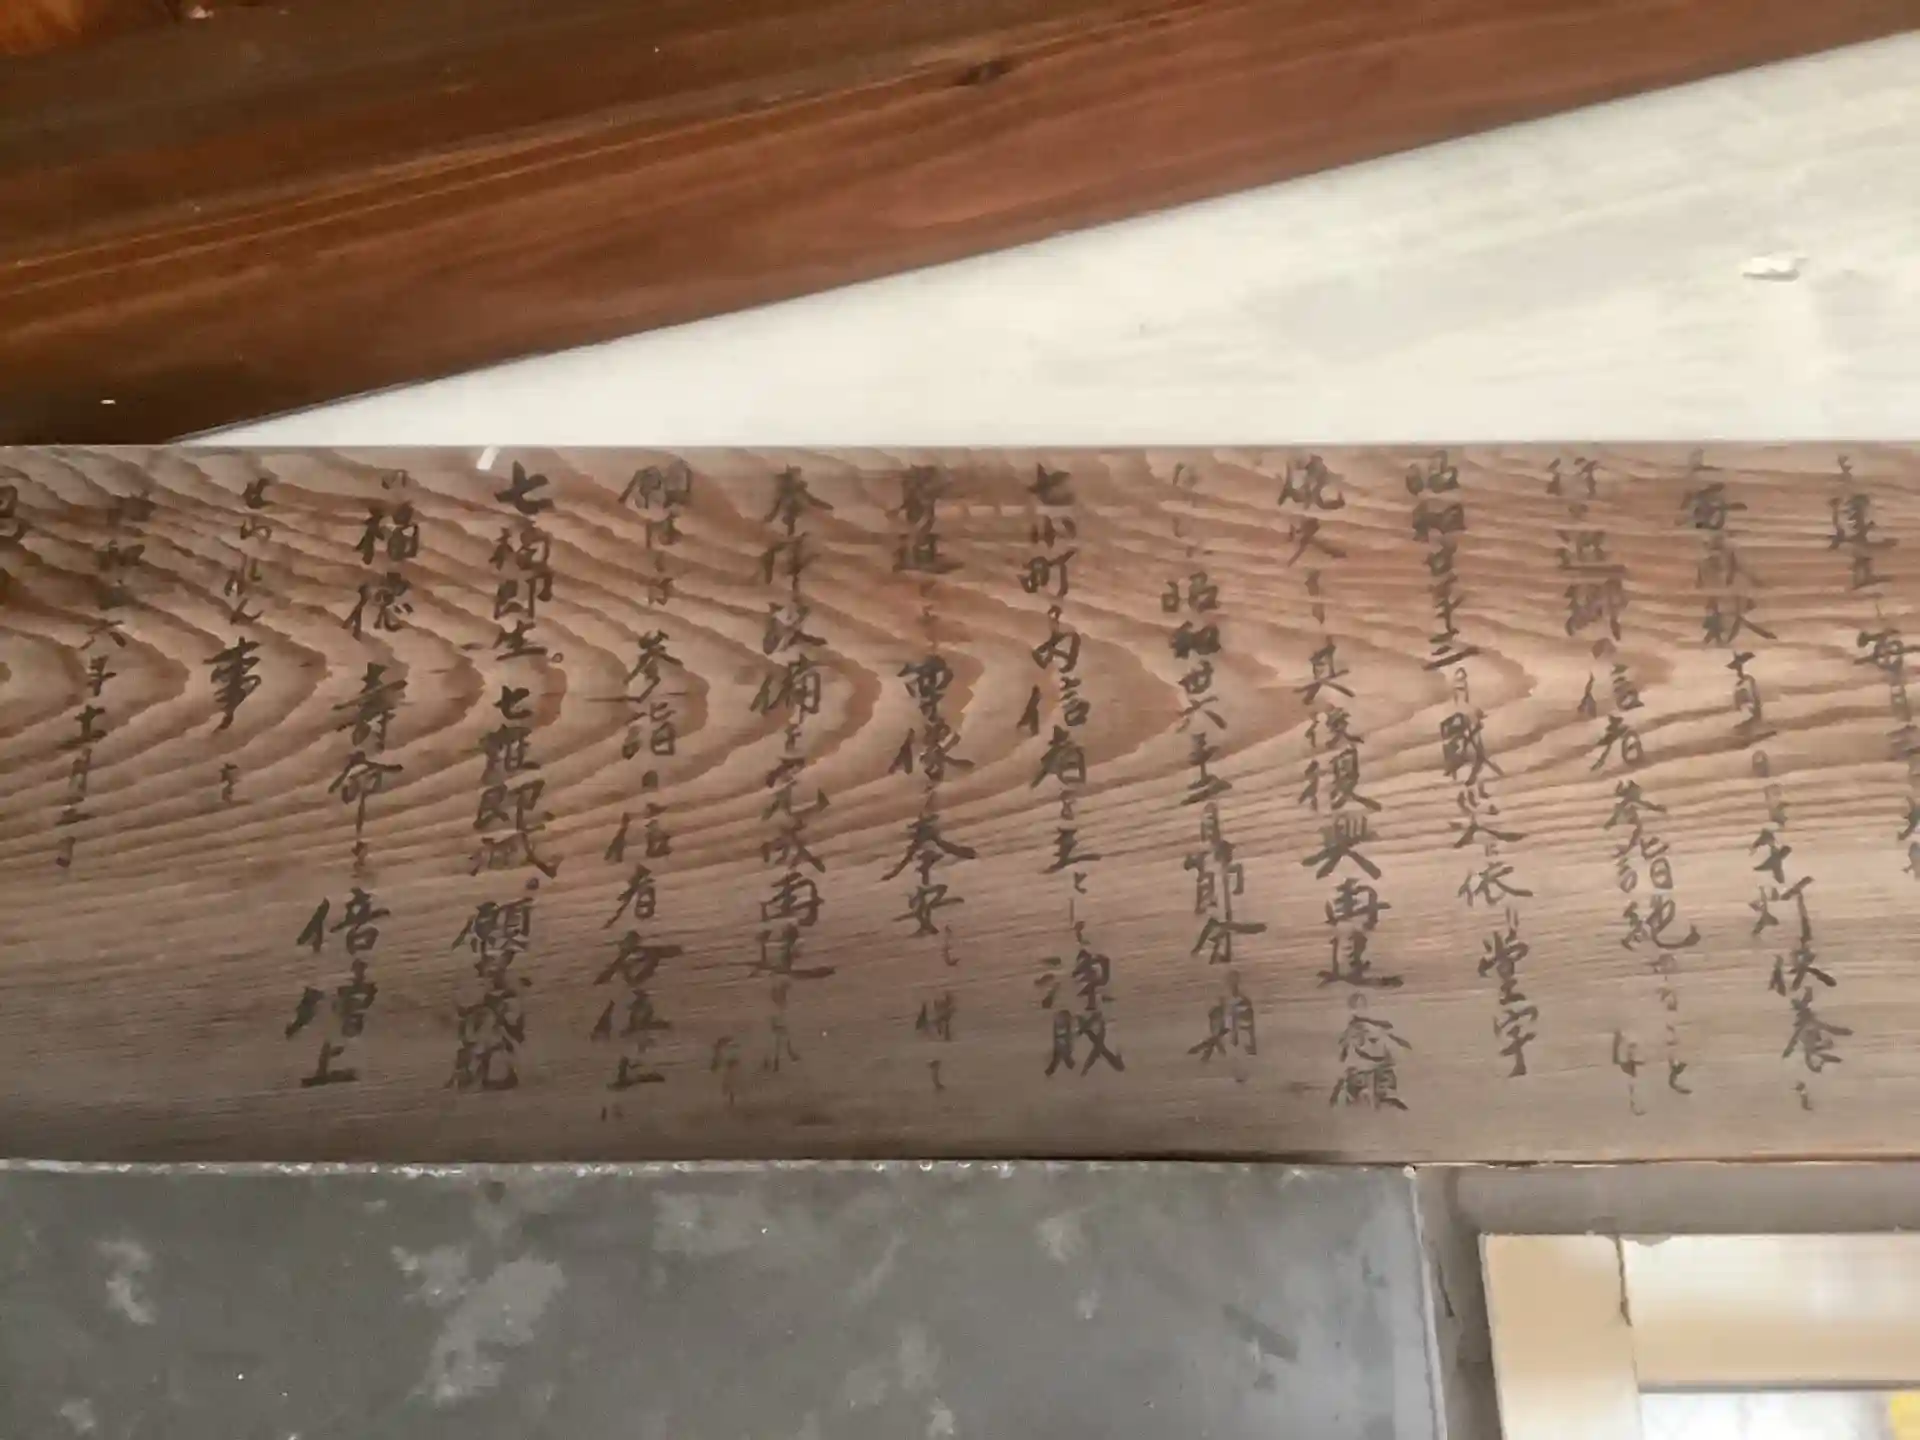 を建立し毎月三日
又毎歳秋十月一日には千灯供養を
行い近郷の信者参詣絶ゆること なし
昭和廿年三月戦災に依り堂宇
焼失せり其後復興再建の念願
なし昭和卅六年二月節分を期し
七小町の内信者を主として浄財
寄進により尊像を奉安し併て
奉拝設備を完成再建せられ たり
願はくは参詣の信者各位上に
七福即生。七難即滅。願望成就
の福徳寿命を倍増上
せられん事を
昭和 六年十一月三日